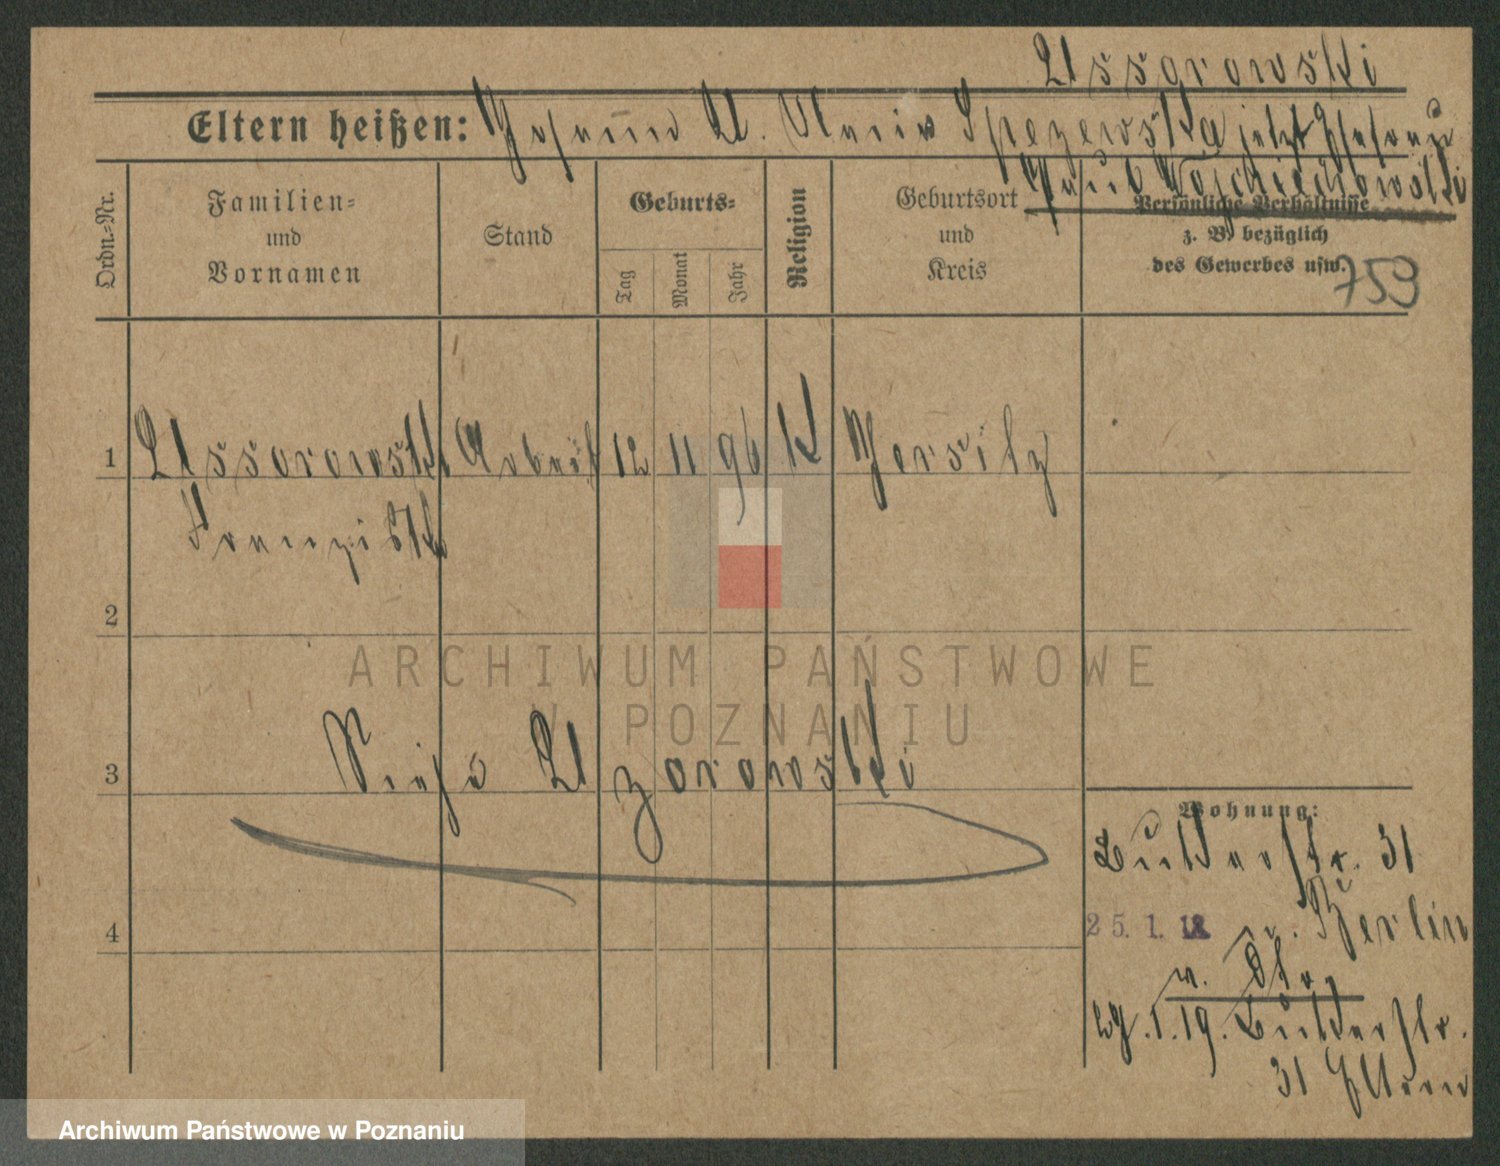 Ussorowski
Eltern heißen: Johann U. Marie Spezewska jetzt Ehefrau
Jakub Wojciechowski
Ordn.=Nr.
Familien=
und
Vornamen
Stand
Geburts=
Tag
Monat
Jahr
Religion
Geburtsort
und
Kreis
Persönliche Verhältnisse
z. B. bezüglich
des Gewerbes usw.
759
1 Ussorowski Arbeit 12 11 96 K Jersitz
Franziska
2
3 Siehe Uzorowski
4
Wohnung:
Bukerstr. 31
25. 1. 18 n. Berlin
v. dto.
29.1.19. Bukerstr.
31 Eltern
ARCHIWUM PAŃSTWOWE
W POZNANIU
Archiwum Państwowe w Poznaniu